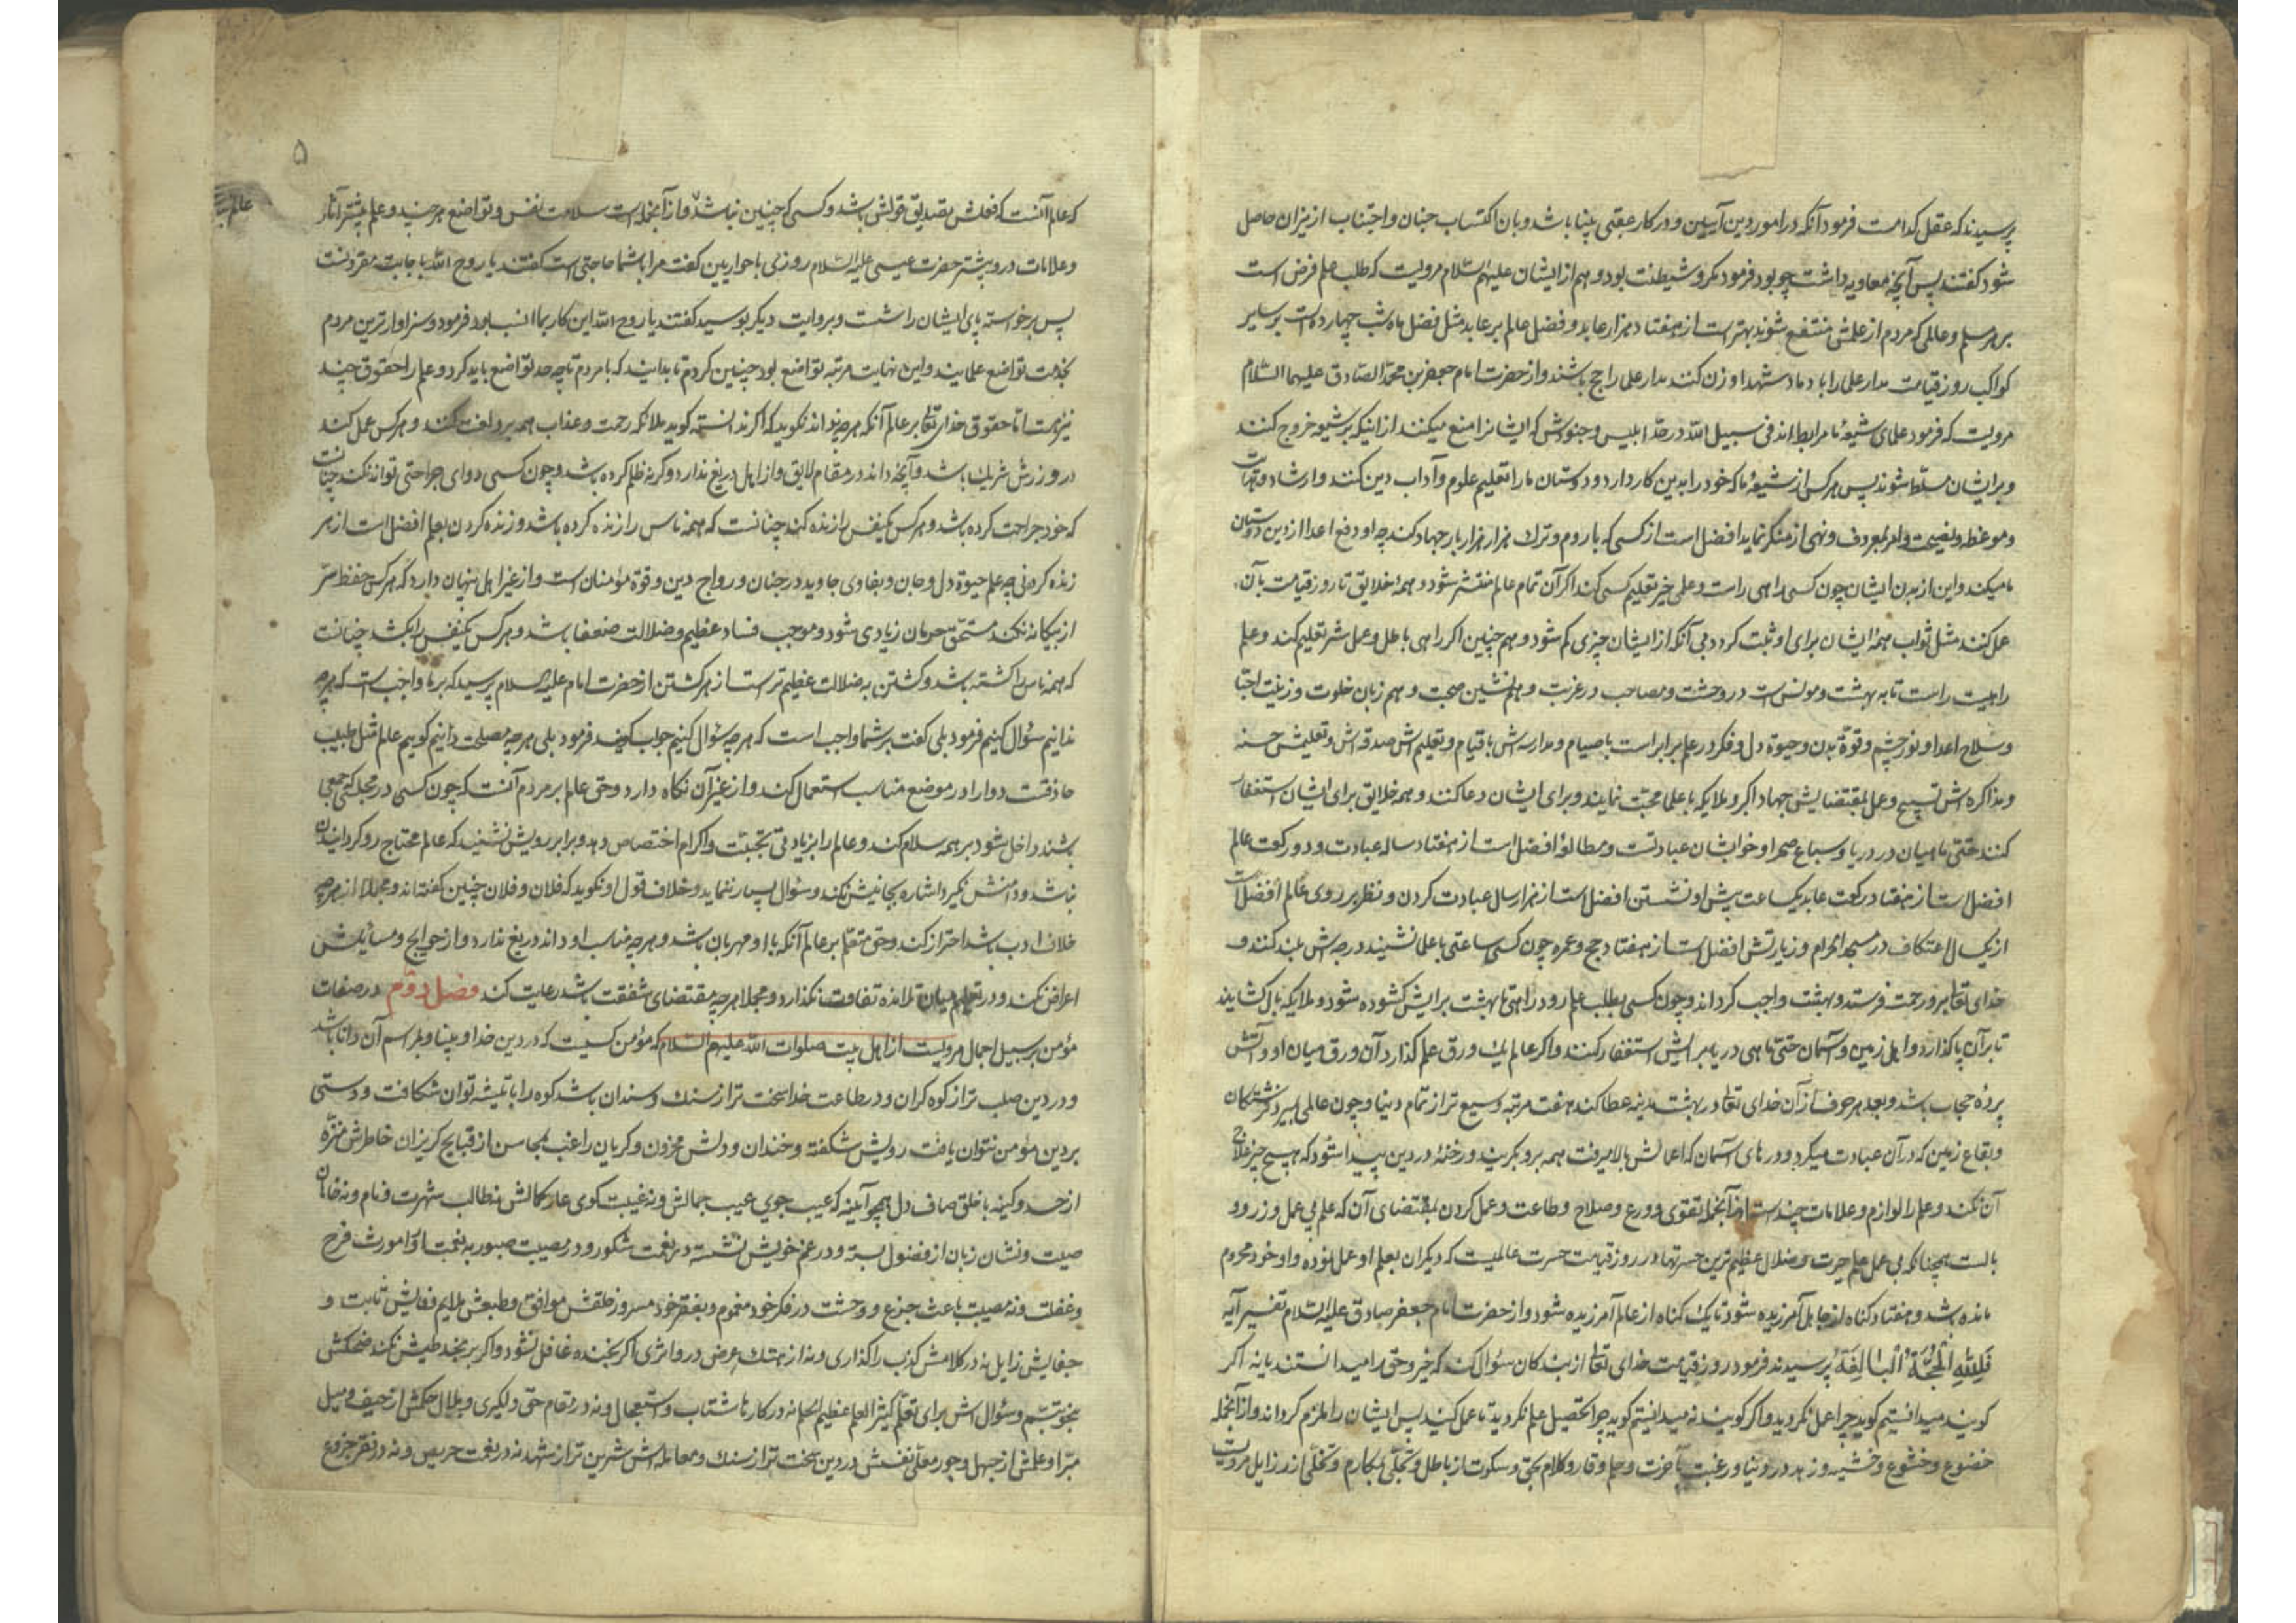 پرسیدند که عقل کدامست فرمود آنکه در امور دین آیین و در کار عقبی بینا باشد و بان اکتساب جنان و اجتناب از نیران حاصل
شود کفتند پس آنچه معاویه داشت چو بود فرمود مکر و شیطنت بود و هم از ایشان علیهم السلام مرویست که طلب علم فرض است
بر هر مسلم و عالمی که مردم از علمش منتفع شوند بهتر است از هفتاد هزار عابد و فضل عالم بر عابد مثل فضل ماه شب چهارده است بر سایر
کواکب روز قیامت مداد علما را با دماء شهدا وزن کنند مداد علما راجح باشد و از حضرت امام جعفر بن محمد الصادق علیهما السلام
مرویست که فرمود علمای شیعهٔ ما مرابط اند فی سبیل الله در حد ابلیس و جنودش که ایشانرا منع میکنند از اینکه بر شیعه خروج کنند
و بر ایشان مسلط شوند پس هر کس از شیعهٔ ما که خود را بدین کار دارد و دوستان ما را تعلیم علوم و آداب دین کند و ارشاد و
و موعظه و نصیحت و امر بمعروف و نهی از منکر نماید افضل است از کسی که با روم و ترک هزار هزار بار جهاد کند چه او دفع اعدا از دین دوستان
ما میکند و این از بدن ایشان چون کسی راهی راست و علمی خیر تعلیم کسی کند اکر آن تمام عالم منتشر شود و همهٔ خلایق تا روز قیامت بآن
عمل کنند مثل ثواب همهٔ ایشان برای او ثبت کردد بی آنکه از ایشان چیزی کم شود و هم چنین اکر راهی باطل و عمل شر تعلیم کند و علم
راهیست راست تا به بهشت و مونس است در وحشت و مصاحب در غربت و همنشین صحبت و هم زبان خلوت و زینت احبّا
و سلاح اعدا و نور چشم و قوّة بدن و حیوة دل و فکر در علم برابر است با صیام و مدارسه اش با قیام و تعلیم اش صدقه اش و تعلیمش حسنه
و مذاکره اش تسبیح و عمل بمقتضایش جهاد اکبر و ملایکه با علما محبّت نمایند و برای ایشان دعا کنند و همه خلایق برای ایشان استغفار
کنند حتی ماهیان در دریا و سباع صحرا و خواب ایشان عبادتست و مطالعه افضل است از هفتاد ساله عبادت و دو رکعت عالم
افضل است از هفتاد رکعت عابد یکساعت پیش او نشستن افضل است از هزار سال عبادت کردن و نظر بر روی عالم افضل است
از یکسال اعتکاف در مسجد الحرام و زیارتش افضل است از هفتاد حج و عمره چون کسی ساعتی با علما نشیند درجه اش بلند کنند و
خدای تعالی برو رحمت فرستد و بهشت واجب کرداند و چون کسی بطلب علم رود راهی تا بهشت برایش کشوده شود و ملایکه بال کشایند
تا بر آن پا کذارد و اهل زمین و آسمان حتی ماهی دریا برایش استغفار کنند و اکر عالم یک ورق علم کذارد آن ورق میان او و آتش
پردهٔ حجاب باشد و بعدد هر حرف از آن خدای تعالی در بهشت مدینه عطا کند هفت مرتبه وسیع تر از تمام دنیا و چون عالمی بمیرد فرشتکان
و بقاع زمین که در آن عبادت میکرد و درهای آسمان که اعمالش بالا میرفت همه برو بکریند و رخنهٔ در دین پیدا شود که هیچ چیز علاج
آن نکند و علم را لوازم و علامات چند است از آنجمله تقوی و ورع و صلاح و طاعت و عمل کردن بمقتضای آن که علم بی عمل وزر و
بالست همچنانکه بی عمل علم حیرت و ضلال عظیم ترین حسرتها در روز قیامت حسرت عالمیست که دیکران بعلم او عمل نموده و او خود محروم
مانده باشد و هفتاد کناه از جاهل آمرزیده شود تا یک کناه از عالم آمرزیده شود و از حضرت امام جعفر صادق علیه السلام تفسیر آیه
فَلِلّهِ الْحُجَّةُ الْبالِغَةُ پرسیدند فرمود در روز قیامت خدای تعالی از بندکان سؤال کند که خیر و حق را میدانستند یا نه اکر
کویند میدانستیم کوید چرا عمل نکردید و اکر کویند نمیدانستیم کوید چرا تحصیل علم نکردید تا عمل کنید پس ایشان را ملزم کرداند و از آنجمله
خضوع و خشوع و خشیه و زهد در دنیا و رغبت بآخرت و حلم و وقار و کلام بحق و سکوت از باطل و تحلّی بمکارم و تخلّی از رذایل مرویست
۵
که عالم آنست که فعلش بصدیق قولش باشد و کسی که چنین نباشد و از آنجمله است سلامت نفس و تواضع هر چند و علم بیشتر آثار
و علامات درو بیشتر حضرت عیسی علیه السلام روزی با حواریین کفت مرا با شما حاجتی است کفتند یا روح الله باجابت مقرونست
پس برخواسته پای ایشان را شست و بروایت دیکر بوسید کفتند یا روح الله این کار بما انسب بود فرمود سزاوارترین مردم
بخدمت تواضع علمایند و این نهایت مرتبه تواضع بود چنین کردم تا بدانید که با مردم تا چه حد تواضع باید کرد و علم را حقوق چند
نیز هست اما حقوق خدای تعالی بر عالم آنکه هر چه نداند نکوید که اکر ندانسته کوید ملائکه رحمت و عذاب همه برو لعنت کنند و هر کس عمل کند
در وزرش شریک باشد و آنچه داند در مقام لایق و از اهل دریغ ندارد و کرنه ظلم کرده باشد و چون کسی دوای جراحتی تواند نکند چنانست
که خود جراحت کرده باشد و هر کس یکنفس را زنده کند چنانست که همهٔ ناس را زنده کرده باشد و زنده کردن بعلم افضل است از هر
زنده کردنی چه علم حیوة دل و جان و بقاوی جاوید در جنان و رواج دین و قوة مؤمنان است و از غیر اهل پنهان دارد که هر کس حفظ سرّ
از بیکانه نکند مستحق حرمان زیادی شود و موجب فساد عظیم و ضلالت ضعفا باشد و هر کس یکنفس را بکشد چنانست
که همهٔ ناس را کشته باشد و کشتن به ضلالت عظیم تر است از هر کشتن از حضرت امام علیه السلام پرسید که بر ما واجب است که هر چه
ندانیم سؤال کنیم فرمود بلی کفت بر شما واجب است که هر چه سؤال کنیم جواب کوید فرمود بلی هر چه مصلحت دانیم کوییم عالم مثل طبیب
حاذقست دوا را در موضع مناسب استعمال کند و از غیر آن نکاه دارد و حق عالم بر مردم آنست که چون کسی در مجلسی که جمعی
باشند داخل شود بر همه سلام کند و عالم را بزیادتی تحیّت و اکرام اختصاص دهد و برابر رویش نشیند که عالم محتاج رو کردانیدن
نباشد و دامنش نکیرد اشاره بجانبش نکند و سؤال بسیار ننماید و خلاف قول او نکوید که فلان و فلان چنین کفته اند و مجملا از هر چه
خلاف ادب باشد احتراز کند و حق متعلّم بر عالم آنکه با او مهربان باشد و هر چه مناسب او داند دریغ ندارد و از حوایج و مسایلش
اعراض نکند و در تعلیم میان تلامذه تفاوت نکذارد و مجملا هر چه مقتضای شفقت باشد رعایت کند فصل دوّم در صفات
مؤمن بر سبیل اجمال مرویست از اهل بیت صلوات الله علیهم السلام که مؤمن کسیست که در دین خدا و بینا و بمراسم آن دانا باشد
و در دین صلب تر از کوه کران و در طاعت خدا سخت تر از سنک و سندان باشد کوه را با تیشه توان شکافت و دستی
بر دین مؤمن نتوان یافت رویش شکفته و خندان و دلش محزون و کریان راغب بمحاسن از قبایح کریزان خاطرش منزّه
از حسد و کینه با خلق صاف دل همچو آینه که عیب جوی عیب جمالش و نه غیبت کوی عار کمالش نه طالب شهرت و نام و نه خاهان
صیت و نشان زبان از فضول بسته و در غم خویش نشسته در نعمت شکور و در مصیبت صبور نه نعمت او را مورث فرح
و غفلت و نه مصیبت باعث جزع و وحشت در فکر خود مغموم و بفقر خود مسرور خلقش موافق و طبعش ملایم وفایش ثابت و
جفایش زایل نه در کلامش کذب را کذاری و نه از هتک عرض درو اثری اکر بخنده غافل نشود و اکر برنجد طیش نکند ضحکش
تبسّم و سؤال اش برای تعلّم کثیر العلم عظیم الحلم نه در کارها شتاب و استعجال و نه در مقام حق دلکیری و ملال حکمش از حیف و میل
مبرّا و علمش از جهل و جور معلّی نفسش در دین سخت تر از سنک و معامله اش شیرین تر از شهد نه در نعمت حریص و نه در فقر جزوع